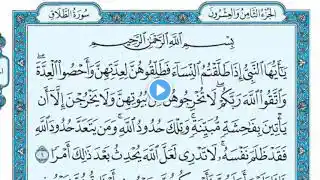 سُورَةُ الطَّلَاقِ
الجُزْءُ الثَّامِنُ وَالعِشْرُونَ
بِسْمِ اللَّهِ الرَّحْمَٰنِ الرَّحِيمِ
يَٰٓأَيُّهَا ٱلنَّبِىُّ إِذَا طَلَّقْتُمُ ٱلنِّسَآءَ فَطَلِّقُوهُنَّ لِعِدَّتِهِنَّ وَأَحْصُوا۟ ٱلْعِدَّةَ ۖ
وَٱتَّقُوا۟ ٱللَّهَ رَبَّكُمْ ۖ لَا تُخْرِجُوهُنَّ مِنۢ بُيُوتِهِنَّ وَلَا يَخْرُجْنَ إِلَّآ أَن
يَأْتِينَ بِفَٰحِشَةٍ مُّبَيِّنَةٍ ۚ وَتِلْكَ حُدُودُ ٱللَّهِ ۚ وَمَن يَتَعَدَّ حُدُودَ ٱللَّهِ
فَقَدْ ظَلَمَ نَفْسَهُۥ ۚ لَا تَدْرِى لَعَلَّ ٱللَّهَ يُحْدِثُ بَعْدَ ذَٰلِكَ أَمْرًا ١